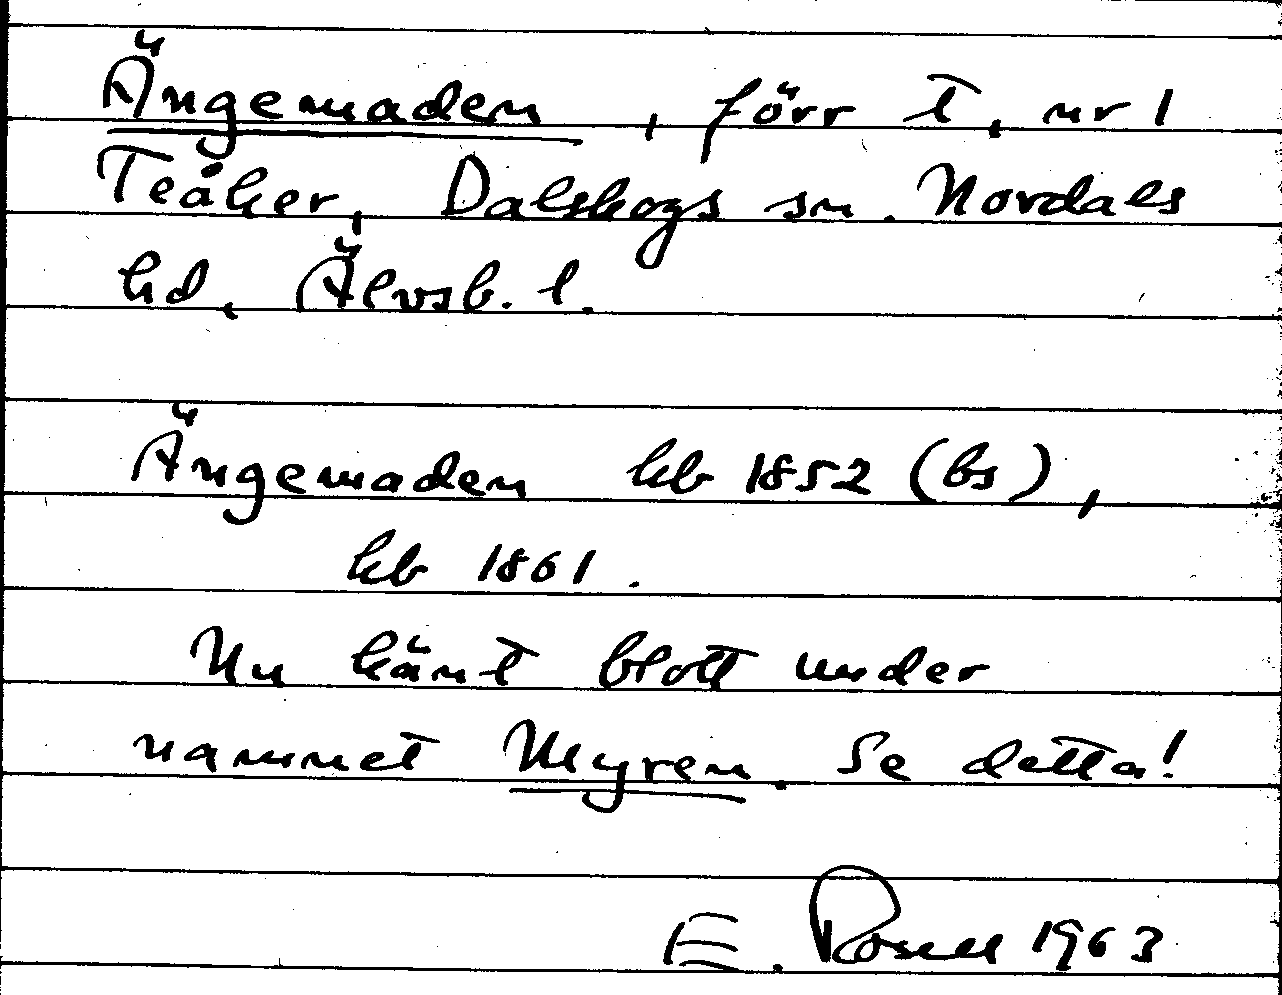 Ängemaden, förr t, nr 1
Teåker, Dalskogs sn. Nordals
hd, Älvsb. l.
Ängemaden kb 1852 (bs),
kb 1861.
Nu känt blott under
namnet Myren. Se detta!
E. Rosell 1963